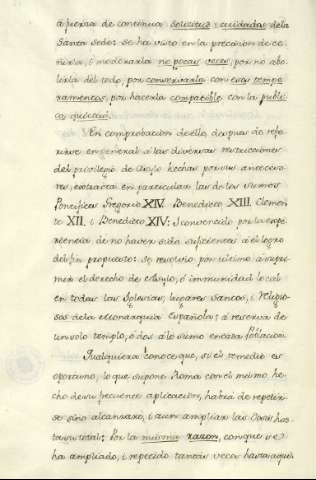 á fuerza de continua solicitud i cuidados dela
Santa Sede: se ha visto en la precision de ce-
ñirla, i moderarla no pocas veces, por no abo-
lirla del todo, por conservarla con estos tempe-
ramentos, por hacerla compatible con la publi-
ca quietud.
En comprobacion de ello, despues de refe-
rirse en general á las diversas restricciones
del privilegio de Asylo hechas por sus anteceso-
res, extracta en particular las de los sumos
Pontifices Gregorio XIV. Benedicto XIII. Clemen-
te XII. i Benedicto XIV: i convencido por la expe-
riencia, de no haver sido suficientes á el logro
del fin propuesto: se resolvio por ultimo á supri-
mir el derecho de Asylo, ó immunidad local
en todas las Iglesias, lugares santos, i Religio-
sos de la Monarquia Española; á reserva de
un solo templo, ó dos á lo sumo en cada Poblacion
Qualquiera conoce que, si el remedio es
oportuno, lo que supone Roma con el mismo he-
cho de su frequente aplicacion, habrá de repetir-
se sino alcanzare, i aun ampliar las Dosis has-
ta su total: Por la misma razon, con que se
ha ampliado, i repetido tantas veces hasta aqui